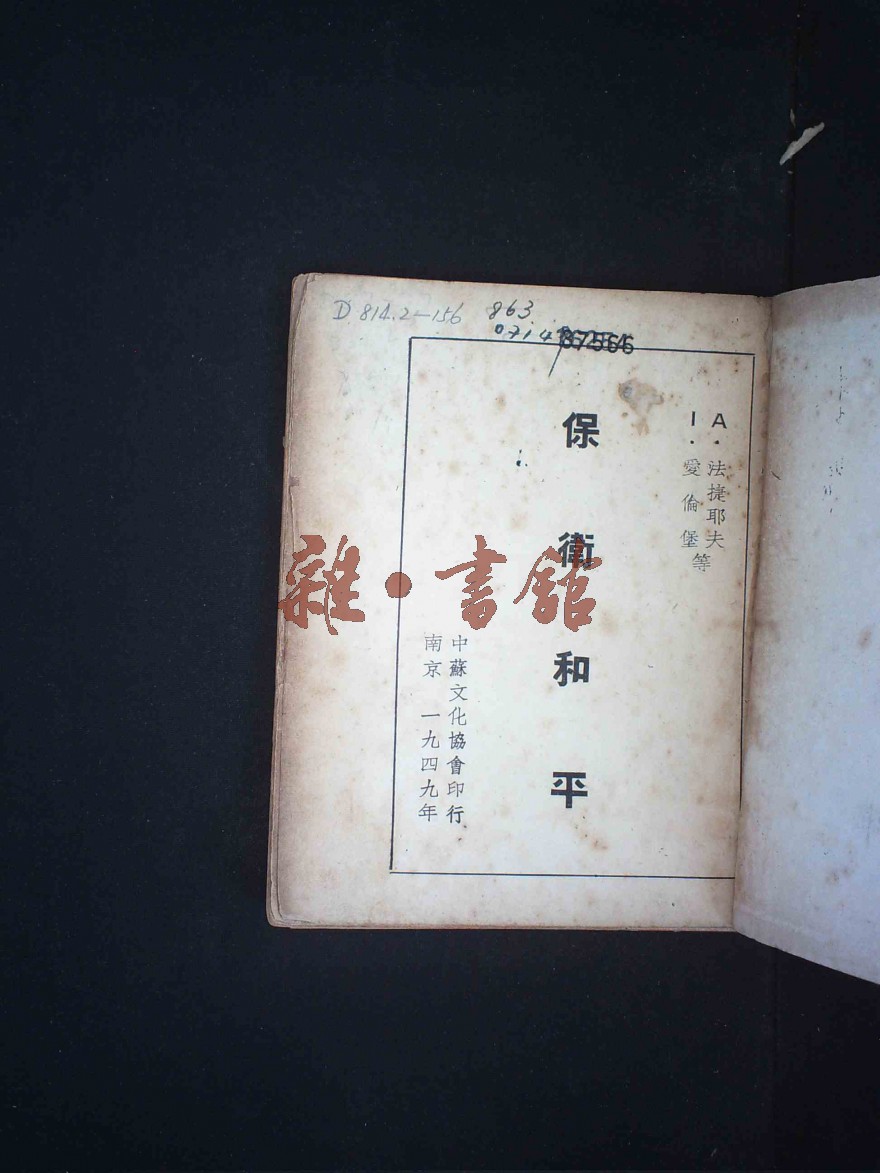 D 814.2—156
863
0714
87566
A·法捷耶夫
I·愛倫堡等
保衛和平
中蘇文化協會印行
南京 一九四九年
雜·書館